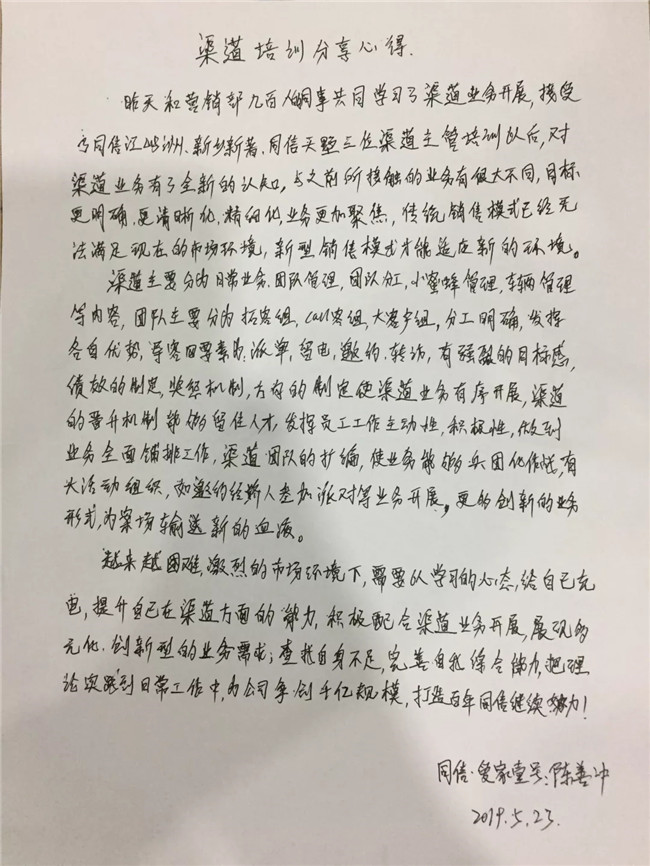 渠道培训分享心得.
昨天和营销部九百人同事共同学习了渠道业务开展,接受
了同信江屿洲、新乡新著、同信天墅三位渠道主管培训以后,对
渠道业务有了全新的认知,与之前所接触的业务有很大不同,目标
更明确、更清晰化、精细化,业务更加聚焦,传统销售模式已经无
法满足现在的市场环境,新型销售模式才能适应新的环境。
渠道主要分为日常业务、团队管理,团队分工,小蜜蜂管理,车辆管理
等内容,团队主要分为拓客组,call客组,大客户组,分工明确,发挥
各自优势,导客四要素为:派单,留电,邀约、转访,有强烈的目标感,
绩效的制定,奖惩机制,方向的制定使渠道业务有序开展,渠道
的晋升机制能够留住人才,发挥员工工作主动性,积极性,做到
业务全面铺排工作,渠道团队的扩编,使业务能够兵团化作战,有
大活动组织,如邀约经纪人举办派对等业务开展。更多创新的业务
形式,为案场输送新的血液。
越来越困难,激烈的市场环境下,需要以学习的心态,给自己充
电,提升自己在渠道方面的能力,积极配合渠道业务开展,展现多
元化、创新型的业务需求;查找自身不足,完善自我综合能力,把理
论实践到日常工作中,为公司争创千亿规模,打造百年同信继续努力!
同信·爱家壹号:陈善冲
2019.5.23.